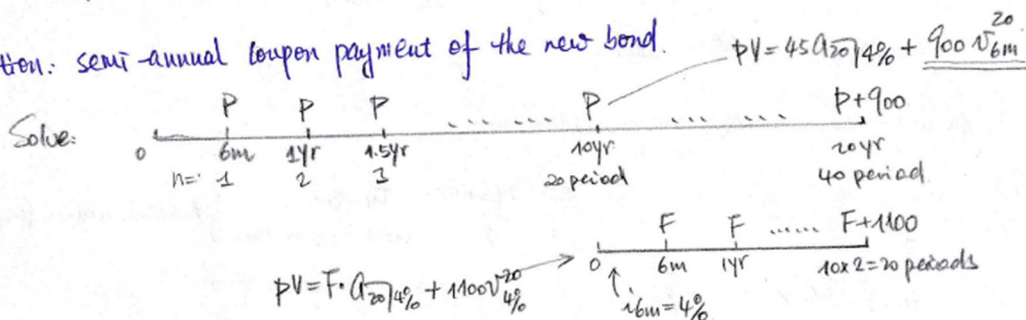 tion: semi-annual coupon payment of the new bond.
PV = 45 a20⌉4% + 900 v^20 6m
Solve:
P P P P P+900
0 6m 1yr 1.5yr 10yr 20yr
n=: 1 2 3 20 period 40 period
F F ...... F+1100
0 6m 1yr 10x2=20 periods
PV = F·a20⌉4% + 1100 v^20 4%
i6m=4%